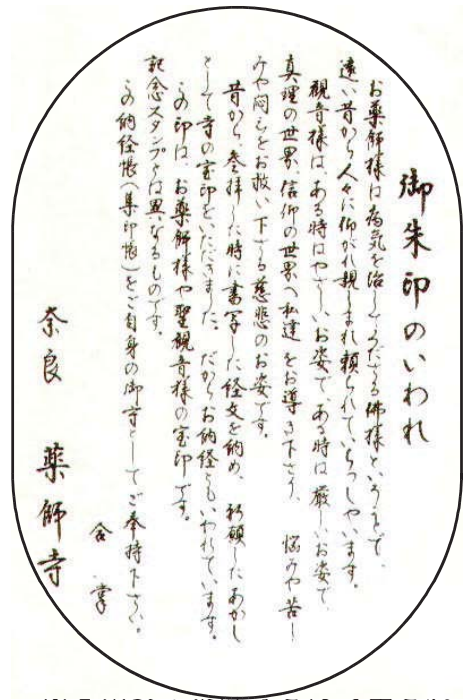 御朱印のいわれ
お薬師様は病気を治して下さる佛様ということで、
遠い昔から人々に仰がれ親しまれ頼られていらっしゃいます。
観音様は、ある時はやさしいお姿で、ある時は厳しいお姿で
真理の世界、信仰の世界へ私達をお導き下さり、悩みや苦し
みや悶えをお救い下さる慈悲のお姿です。
昔から、参拝した時に書写した経文を納め、祈願したあかし
として寺の宝印をいただきました。だからお納経ともいわれています。
この印は、お薬師様や聖観音様の宝印です。
記念スタンプとは異なるものです。
この納経帳(集印帳)をご自身の御守としてご奉持下さい。
合掌
奈良 薬師寺